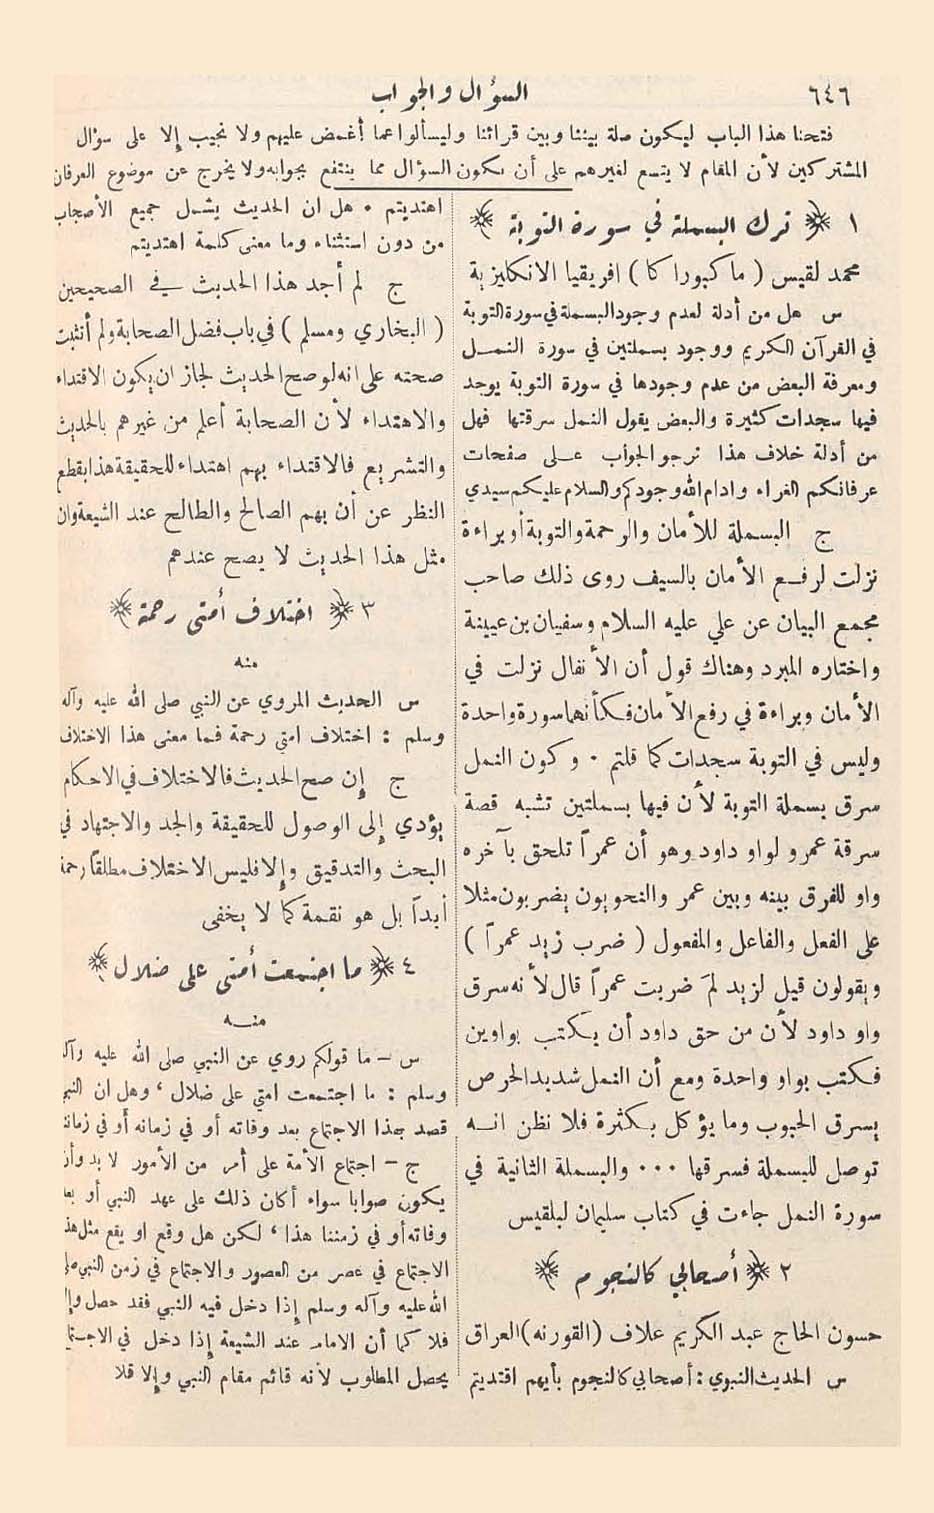 ٦٤٦
السؤال والجواب
فتحنا هذا الباب ليكون صلة بيننا وبين قرائنا وليسألوا عما أغمض عليهم ولا نجيب إلا على سؤال
المشتركين لأن المقام لا يتسع لغيرهم على أن يكون السؤال مما ينتفع بجوابه ولا يخرج عن موضوع العرفان
١ ﴿ ترك البسملة في سورة التوبة ﴾
محمد لقيس ( ماكبوراكا ) افريقيا الانكليزية
س هل من أدلة لعدم وجود البسملة في سورة التوبة
في القرآن الكريم ووجود بسملتين في سورة النمــل
ومعرفة البعض من عدم وجودها في سورة التوبة يوجد
فيها سجدات كثيرة والبعض يقول النمل سرقتها فهل
من أدلة خلاف هذا نرجو الجواب عــلى صفحات
عرفانكم الغراء وادام الله وجودكم والسلام عليكم سيدي
ج البسملة للأمان والرحمة والتوبة أو براءة
نزلت لرفــع الأمان بالسيف روى ذلك صاحب
مجمع البيان عن علي عليه السلام وسفيان بن عيينة
واختاره المبرد وهناك قول أن الأنفال نزلت في
الأمان وبراءة في رفع الأمان فكأنهما سورة واحدة
وليس في التوبة سجدات كما قلتم ٠ وكون النمل
سرق بسملة التوبة لأن فيها بسملتين تشبه قصة
سرقة عمرو لواو داود وهو أن عمراً تلحق بآخره
واو للفرق بينه وبين عمر والنحويون يضربون مثلا
على الفعل والفاعل والمفعول ( ضرب زيد عمراً )
ويقولون قيل لزيد لمَ ضربت عمراً قال لأنه سرق
واو داود لأن من حق داود أن يــكتب بواوين
فــكتب بواو واحدة ومع أن النمل شديد الحرص
يسرق الحبوب وما يؤكل بــكثرة فلا نظن انــه
توصل للبسملة فسرقها ٠٠٠ والبسملة الثانية في
سورة النمل جاءت في كتاب سليمان لبلقيس
٢ ﴿ أصحابي كالنجوم ﴾
حسون الحاج عبد الكريم علاف (القورنه) العراق
س الحديث النبوي : أصحابي كالنجوم بأيهم اقتديتم
اهتديتم ٠ هل ان الحديث يشمــل جميع الأصحاب
من دون استثناء وما معنى كلمة اهتديتم
ج لم أجد هذا الحديث في الصحيحين
( البخاري ومسلم ) في باب فضل الصحابة ولم أتثبت
صحته على انه لو صح الحديث لجاز ان يكون الاقتداء
والاهتداء لأن الصحابة أعلم من غيرهم بالحديث
والتشريع فالاقتداء بهم اهتداء للحقيقة هذا بقطع
النظر عن أن بهم الصالح والطالح عند الشيعة وان
مثل هذا الحديث لا يصح عندهم
٣ ﴿ اختلاف أمتي رحمة ﴾
منه
س الحديث المروي عن النبي صلى الله عليه وآله
وسلم : اختلاف امتي رحمة فما معنى هذا الاختلاف
ج إن صح الحديث فالاختلاف في الاحكام
يؤدي إلى الوصول للحقيقة والجد والاجتهاد في
البحث والتدقيق وإلا فليس الاختلاف مطلقاً رحمة
أبداً بل هو نقمة كما لا يخفى
٤ ﴿ ما اجتمعت أمتي على ضلال ﴾
منــه
س – ما قولكم روي عن النبي صلى الله عليه وآله
وسلم : ما اجتمعت امتي على ضلال ، وهل ان النبي
قصد بهذا الاجتماع بعد وفاته أو في زمانه أو في زماننا
ج – اجتماع الأمة على أمر من الأمور لا بد وأن
يكون صوابا سواء أكان ذلك على عهد النبي أو بعد
وفاته أو في زمننا هذا ، لكن هل وقع او يقع مثل هذا
الاجتماع في عصر من العصور والاجتماع في زمن النبي صلى
الله عليه وآله وسلم إذا دخل فيه النبي فقد حصل وإلا
فلا كما أن الامام عند الشيعة إذا دخل في الاجــتماع
يحصل المطلوب لأنه قائم مقام النبي وإلا فلا